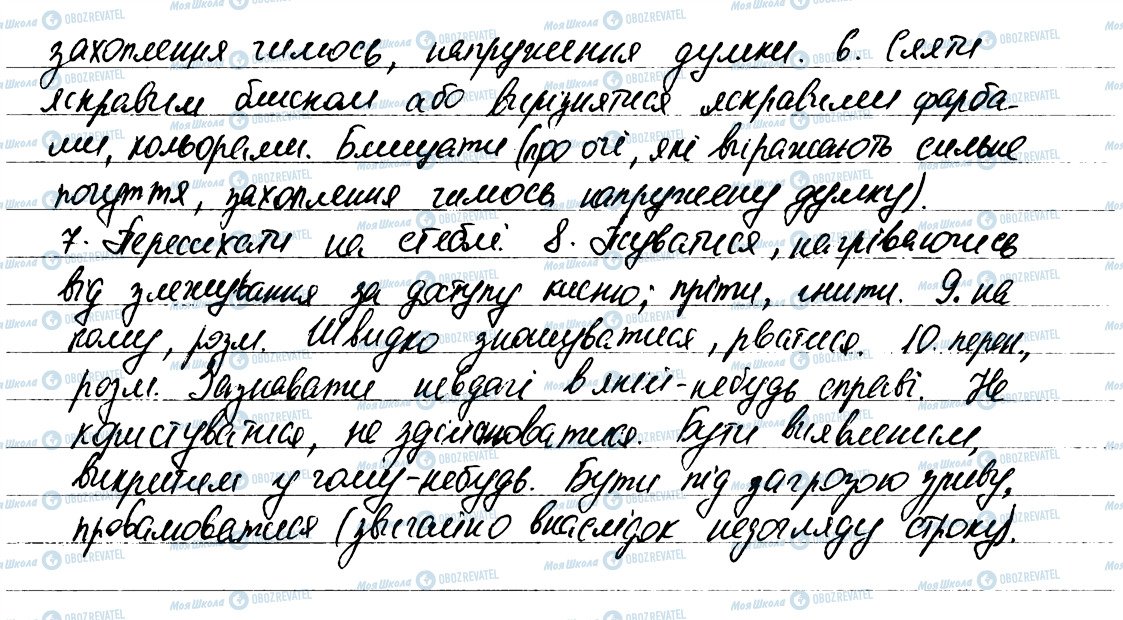 захоплення чимось, напруження думки. 6. Сяяти
яскравим блиском або вирізнятися яскравими фарба-
ми, кольорами. Блищати (про очі, які виражають сильне
почуття, захоплення чимось, напружену думку).
7. Пересихати на стеблі. 8. Псуватися, нагріваючись
від злежування за доступу кисню; пріти, гнити. 9. на
кому, розм. Швидко зношуватися, рватися. 10. перен.,
розм. Зазнавати невдачі в якій-небудь справі. Не
користуватися, не здійснюватися. Бути виявленим,
викритим у чому-небудь. Бути під загрозою зриву,
провалюватися (звичайно внаслідок недогляду строку).